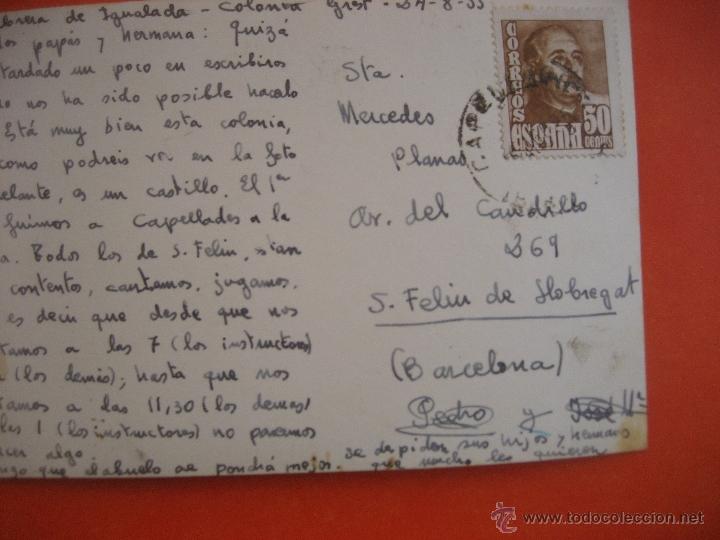 brera de Igualada - Colonia
dos papás y hermana: Quizá
tardado un poco en escribiros
no nos ha sido posible hacelo
Está muy bien esta colonia,
como podreis ver en la foto
elante, es un castillo. El 1er
fuimos a Capellades a la
a. Todos los de S. Feliu,
contentos, cantamos, jugamos.
es decir que desde que nos
tamos a las 7 (los instructores)
(los demás); hasta que nos
tamos a las 11,30 (los demas)
1 (los instructores) no paramos
acer algo
ngo que el abuelo se pondrá mejor. se despiden sus hijos y hermanos
que mucho les quieren
Pedro y José Mª
Sta.
Mercedes
Planas
Av. del Caudillo
269
S. Feliu de Llobregat
(Barcelona)
CORREOS
ESPAÑA
50
CENTMS
CAPELLADES
www.todocoleccion.net